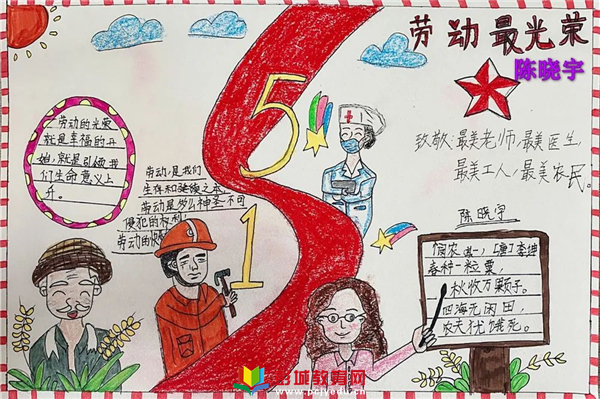 劳动最光荣
陈晓宇
5
1
致敬:最美老师,最美医生,
最美工人,最美农民。
劳动的光荣
就是幸福的开
始,就是引领我
们生命意义上
升。
劳动,是我们
生存和
劳动是多么神圣不可
侵犯的权利!
劳动的
陈晓宇
悯农 其一,[唐]李绅
春种一粒粟,
秋收万颗子。
四海无闲田,
农夫犹饿死。
城教育网